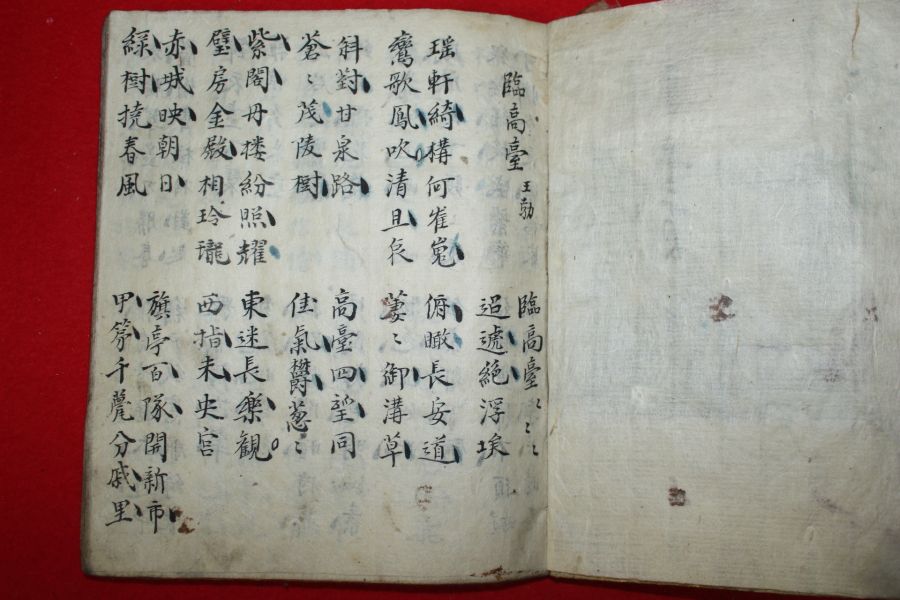 臨高臺 王勃
臨高臺〻〻
迢遞絕浮埃
瑶軒綺構何崔嵬
鸞歌鳳吹清且哀
俯瞰長安道
萋〻御溝草
斜對甘泉路
蒼〻茂陵樹
高臺四望同
佳氣欝葱〻
紫閣丹楼紛照耀
璧房金殿相玲瓏
東迷長樂観
西指未央宮
赤城映朝日
緑樹揺春風
旗亭百隊開新市
甲苐千甍分戚里